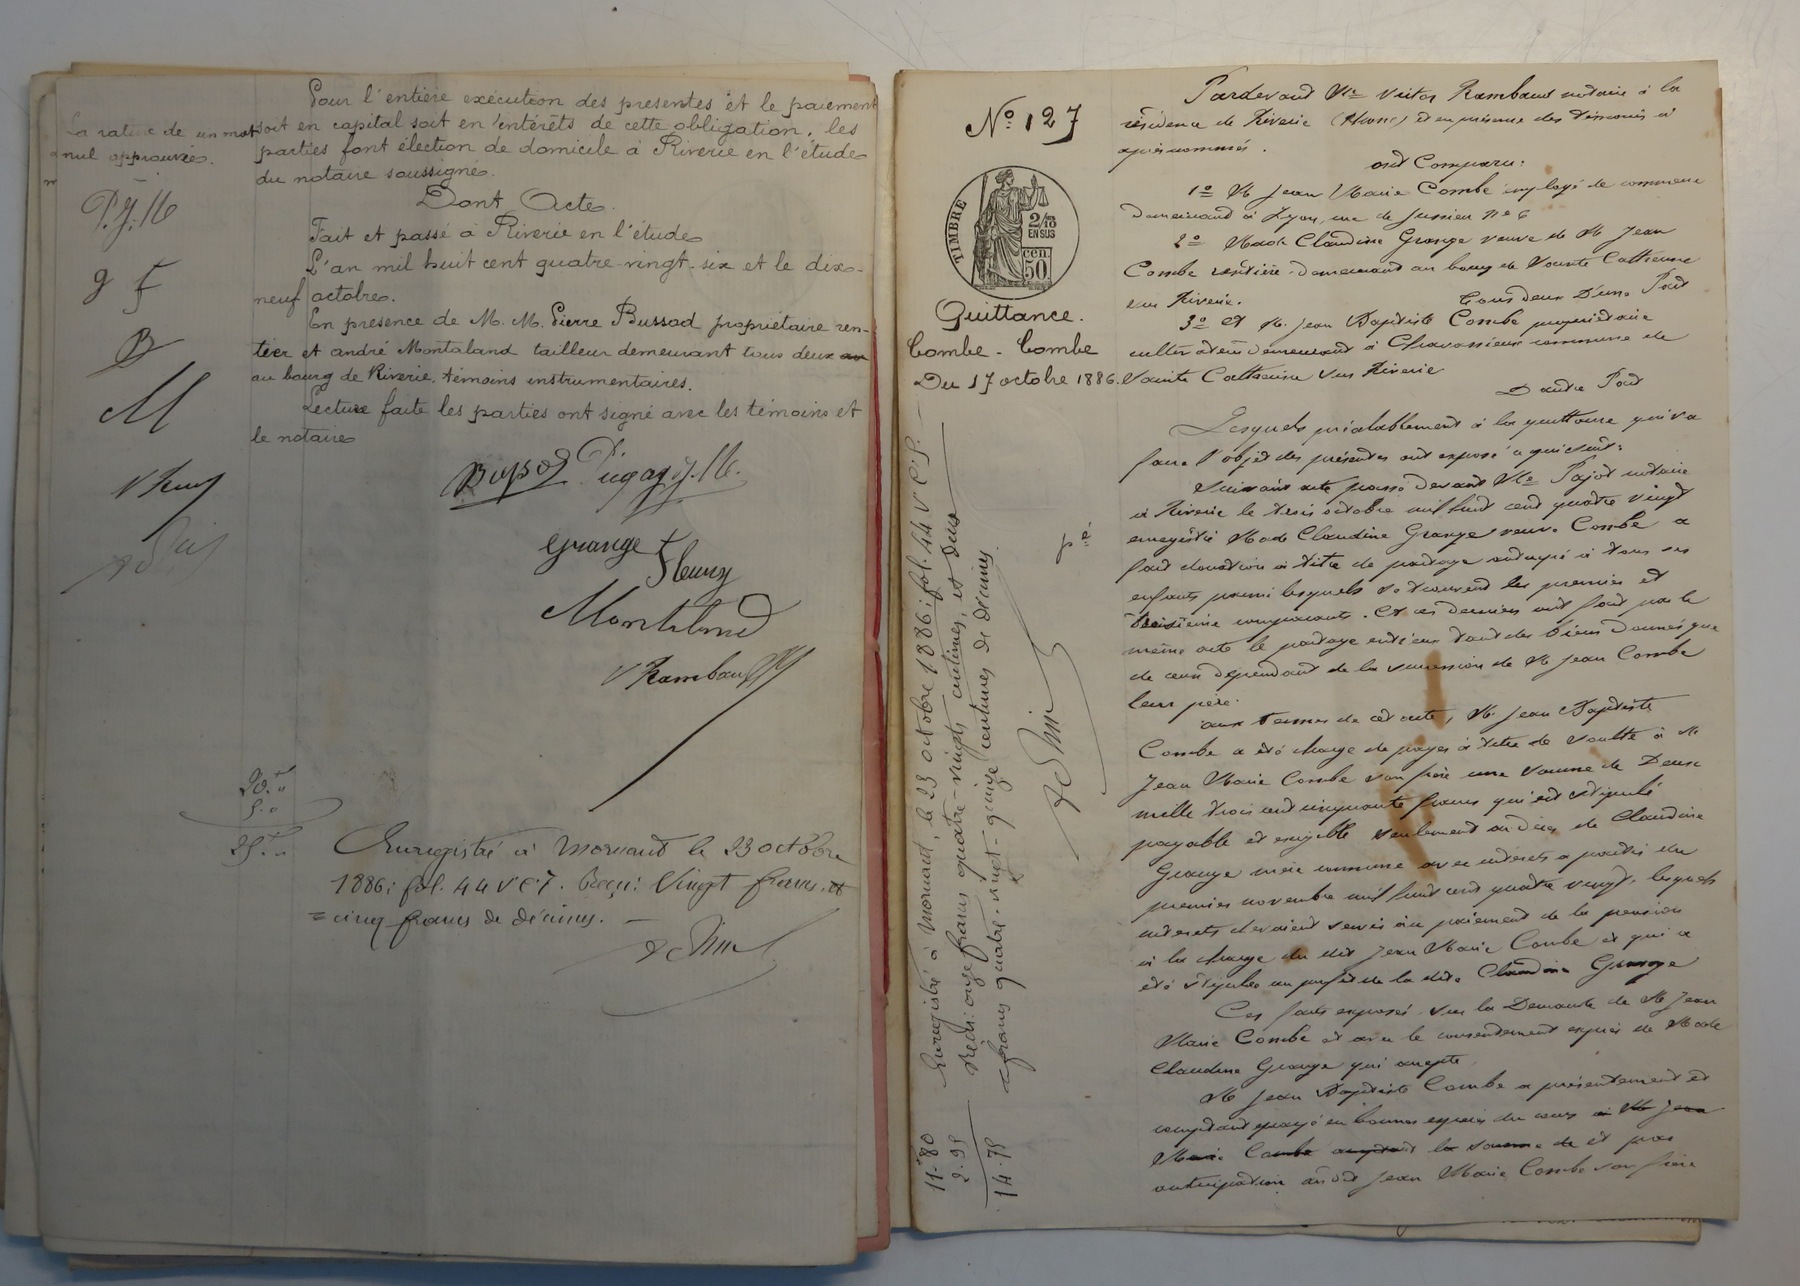 Pour l'entière exécution des présentes et le paiement
soit en capital soit en intérêts de cette obligation, les
parties font élection de domicile à Riverie en l'étude
du notaire soussigné.
Dont Acte.
Fait et passé à Riverie en l'étude
L'an mil huit cent quatre-vingt-six et le dix-
neuf octobre.
En présence de M. M. Pierre Bussod propriétaire ren-
tier et andré Montaland tailleur demeurant tous deux au
au bourg de Riverie, témoins instrumentaires.
Lecture faite les parties ont signé avec les témoins et
le notaire
La rature de un mot
nul approuvée.
P.J.M
g f
B
M
V Ram
Grange f
Fleury
Montaland
V Rambaud
20."
5."
25."
Enregistré à Mornant le 23 octobre
1886; fol. 44 V° C 7. Reçu: Vingt francs et
cinq francs de décimes. —
N° 127
TIMBRE
2/10
EN SUS
50 cen.
Quittance.
Combe - Combe
Du 17 octobre 1886.
Enregistré à Mornant, le 23 octobre 1886; fol. 44 V° C 5.
Reçu: onze francs quatre-vingts centimes, et deux
francs quatre-vingt-quinze centimes de décimes.
11.80
2.95
14.75
Pardevant Me Victor Rambaud notaire à la
résidence de Riverie (Rhône) et en présence des témoins ci
après nommés.
ont Comparu:
1° M Jean Marie Combe employé de commerce
demeurant à Lyon, rue de Jussieu n° 6
2° Made Claudine Grange veuve de M Jean
Combe rentière demeurant au bourg de Sainte Catherine
sur Riverie.
Tous deux D'une Part
3° Et M. Jean Baptiste Combe propriétaire
cultivateur demeurant à Chavassieux commune de
Sainte Catherine sur Riverie
D'autre Part
Lesquels préalablement à la quittance qui va
faire l'objet des présentes ont exposé ce qui suit:
Suivant acte passé devant Me Pajot notaire
à Riverie le trois octobre mil huit cent quatre vingt
enregistré Made Claudine Grange veuve Combe a
fait donation à titre de partage anticipé à tous ses
enfants parmi lesquels se trouvent les premier et
troisième comparants. Et ces derniers ont fait par le
même acte le partage entr'eux tant des biens donnés que
de ceux dépendant de la succession de M Jean Combe
leur père.
Aux termes de cet acte, M. Jean Baptiste
Combe a été chargé de payer à titre de soulte à M
Jean Marie Combe son frère une somme de Deux
mille trois cent cinquante francs qui est stipulé
payable et exigible seulement au décès de Claudine
Grange mère commune avec intérêts à partir du
premier novembre mil huit cent quatre vingt, lesquels
intérêts devaient servir au paiement de la pension
à la charge du dit Jean Marie Combe et qui a
été stipulée au profit de la dite Claudine Grange
Ces faits exposés, sur la Demande de M Jean
Marie Combe et avec le consentement exprès de Made
Claudine Grange qui accepte
M Jean Baptiste Combe a présentement et
comptant payé en bonnes espèces du cours à M Jean
Marie Combe la somme de et par
anticipation au dit Jean Marie Combe son frère